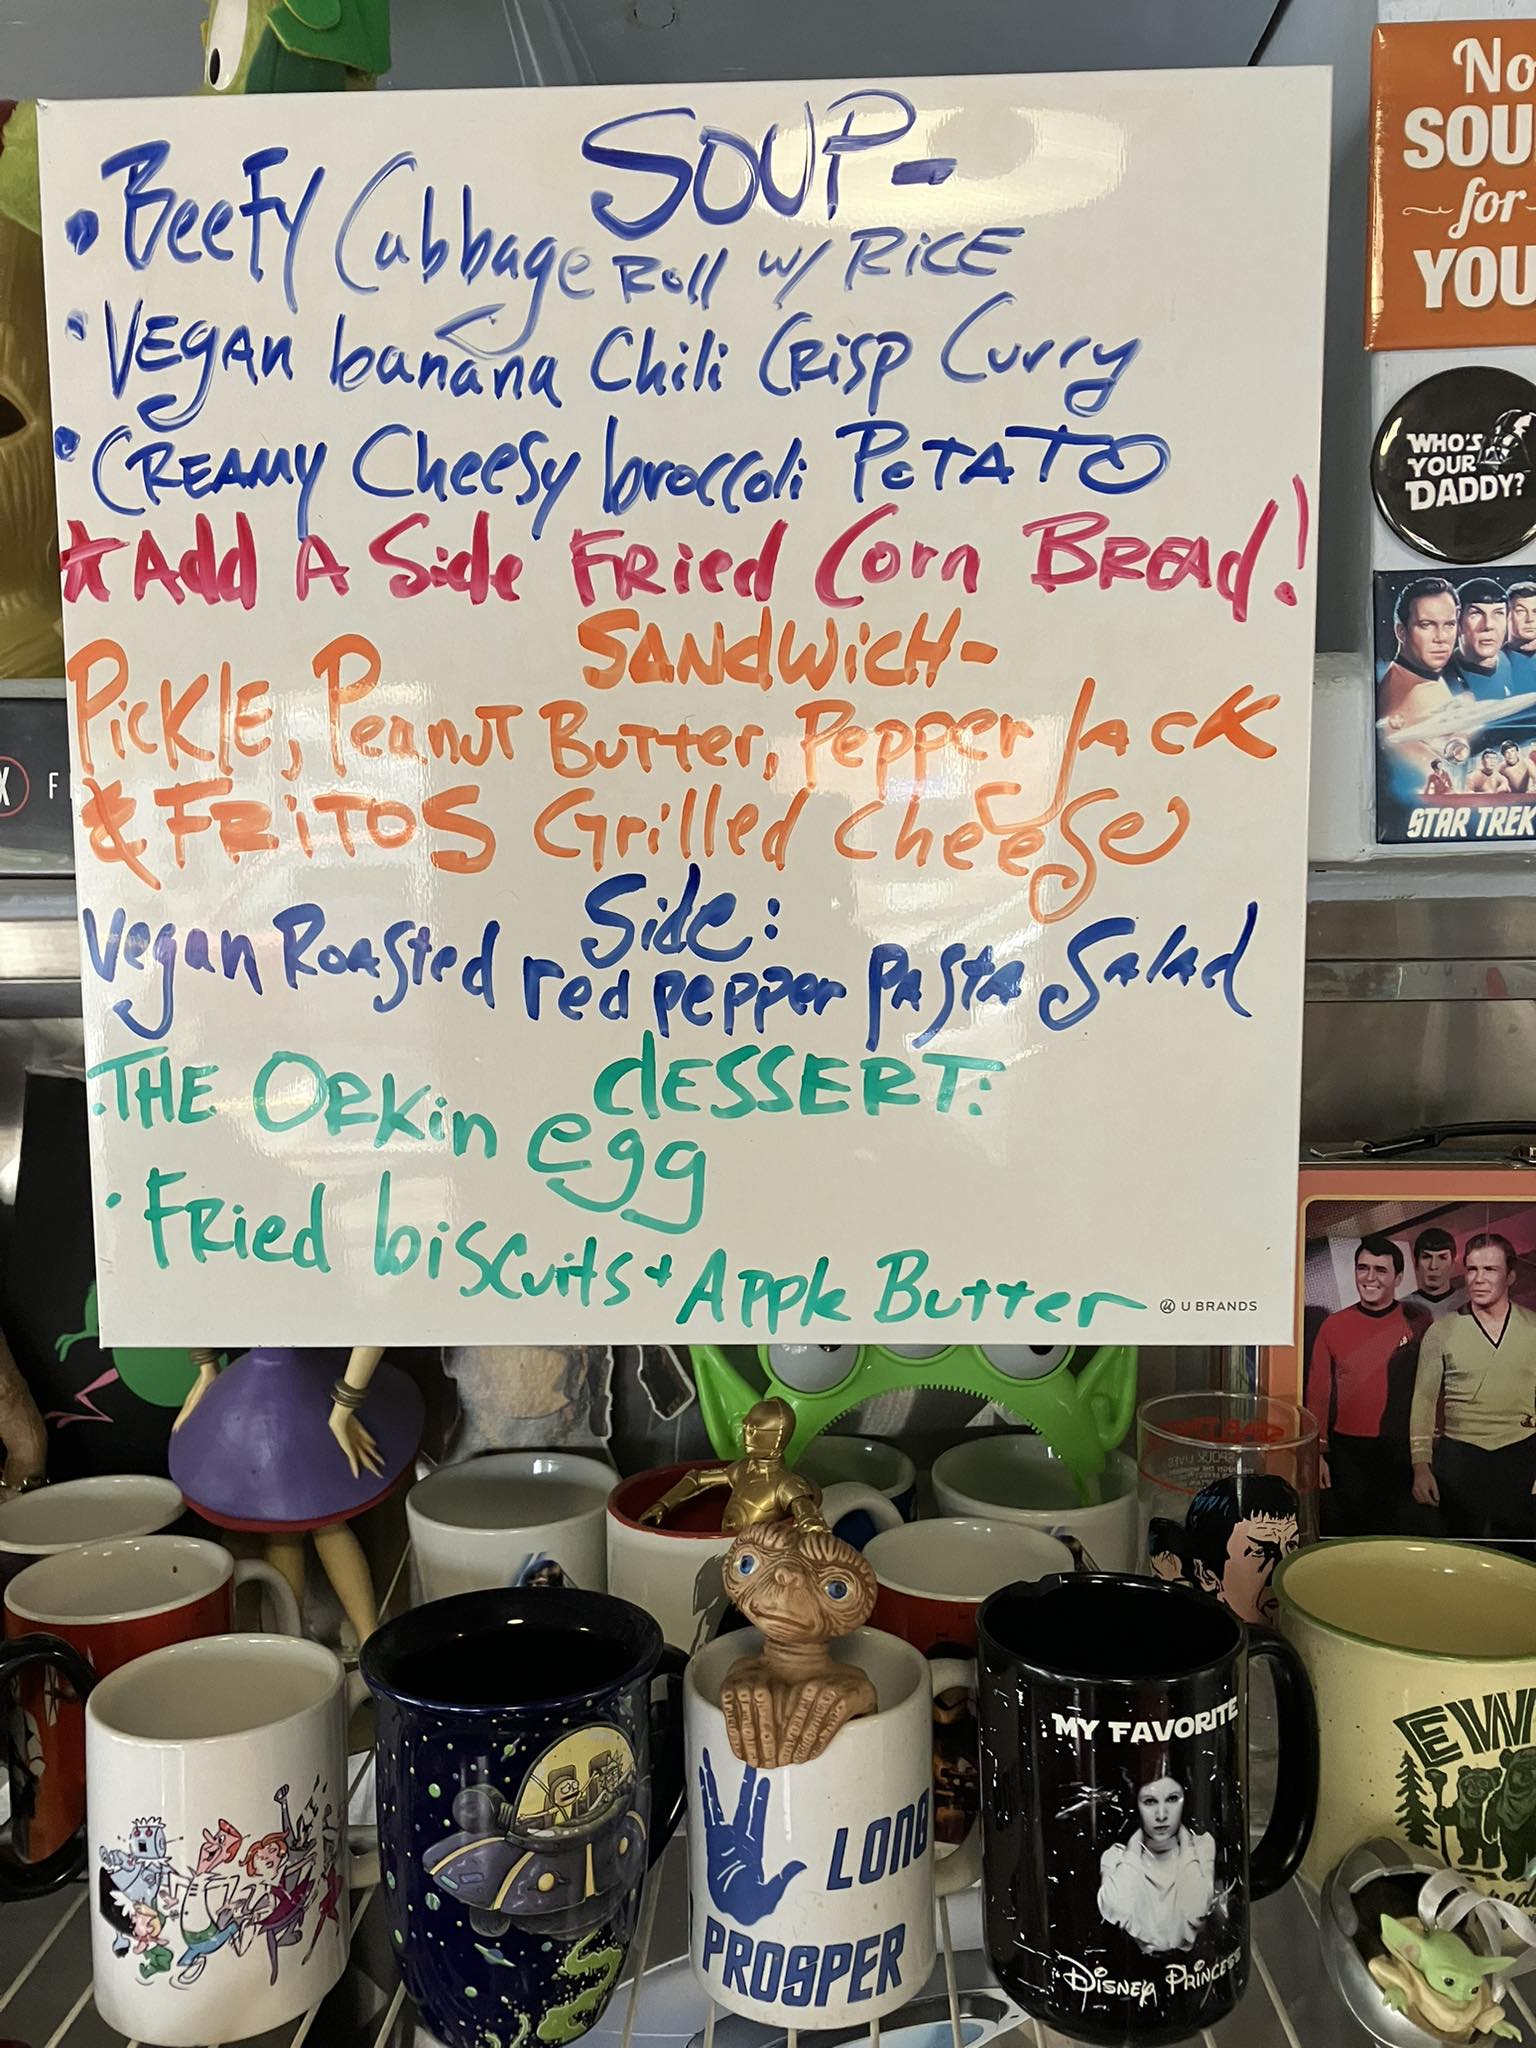 SOUP-
• Beefy Cabbage Roll w/ RICE
• Vegan banana Chili Crisp Curry
• Creamy Cheesy broccoli Potato
* Add A Side Fried Corn Bread!
Sandwich-
Pickle, Peanut Butter, Pepper Jack
& Fritos Grilled Cheese
Side:
Vegan Roasted red pepper pasta Salad
dessert:
• The Orkin egg
• Fried biscuits + Apple Butter
U BRANDS
No
SOU
for
YOU
WHO'S
YOUR
DADDY?
STAR TREK
X F
LONG
PROSPER
MY FAVORITE
DISNEY PRINCESS
EW